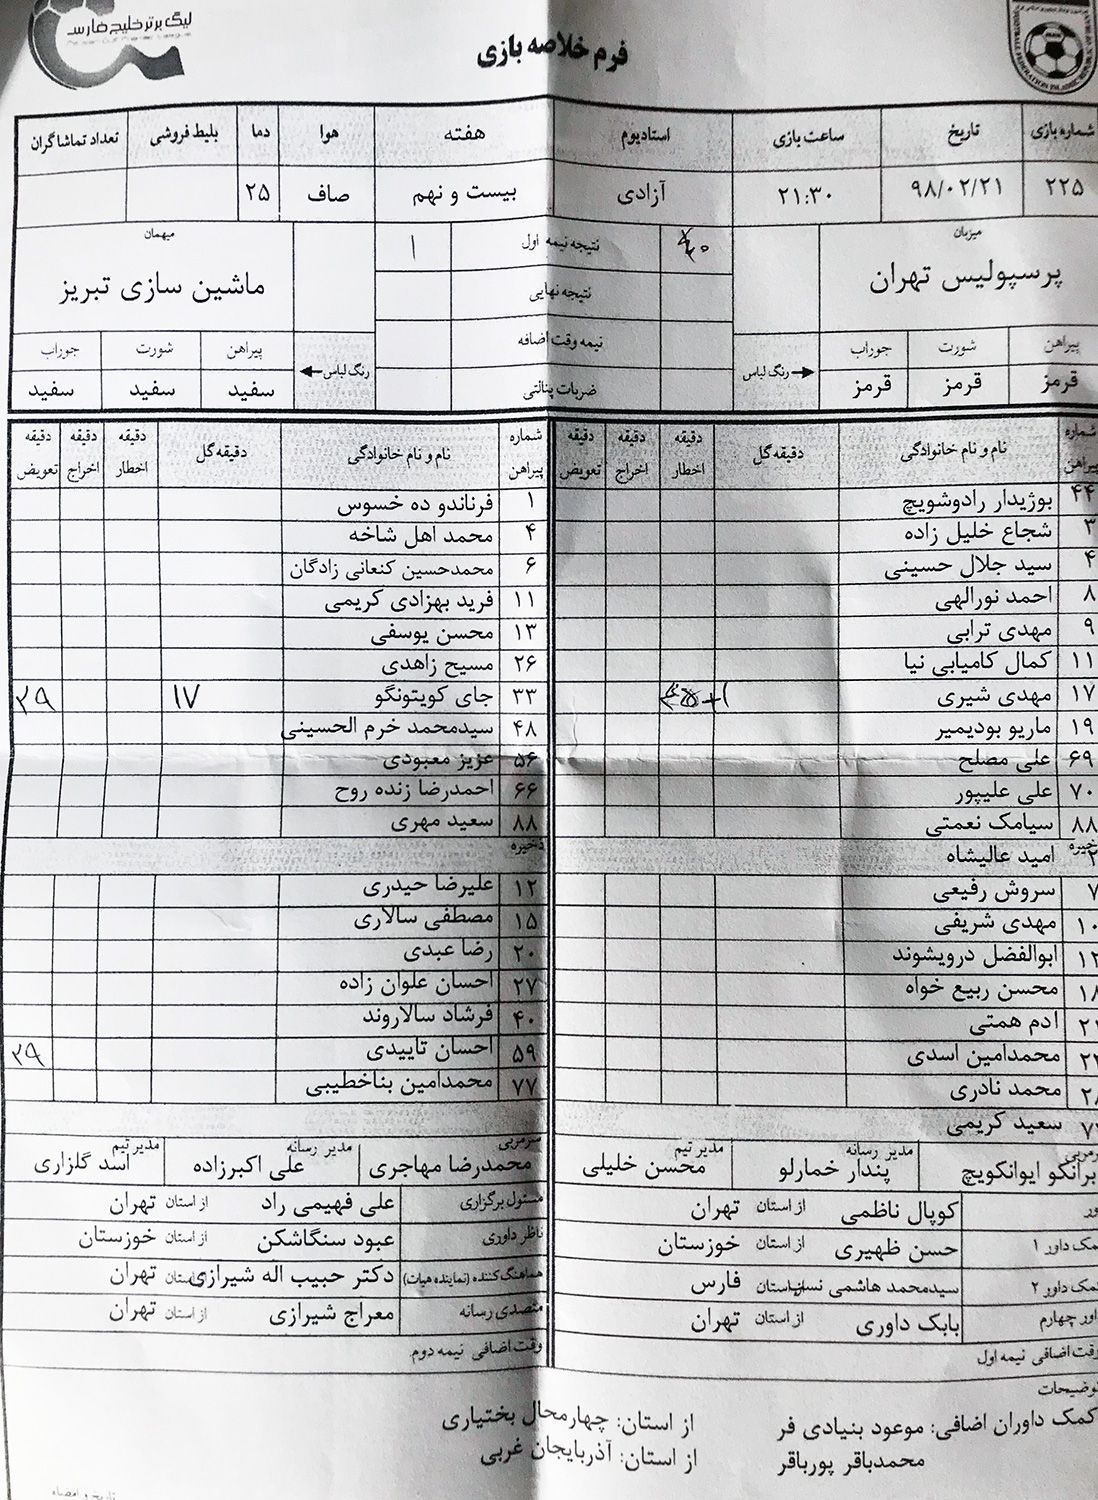 لیگ برتر خلیج فارس
فرم خلاصه بازی
شماره بازی تاریخ ساعت بازی استادیوم هفته هوا دما بلیط فروشی تعداد تماشاگران
۲۲۵ ۹۸/۰۲/۲۱ ۲۱:۳۰ آزادی بیست و نهم صاف ۲۵
میزبان
پرسپولیس تهران
نتیجه نیمه اول ۱
نتیجه نهایی
نیمه وقت اضافه
ضربات پنالتی
میهمان
ماشین سازی تبریز
پیراهن شورت جوراب رنگ لباس
قرمز قرمز قرمز
پیراهن شورت جوراب رنگ لباس
سفید سفید سفید
شماره پیراهن نام و نام خانوادگی دقیقه گل دقیقه اخطار دقیقه اخراج دقیقه تعویض
۴۴ بوژیدار رادوشویچ
۳ شجاع خلیل زاده
۴ سید جلال حسینی
۸ احمد نورالهی
۹ مهدی ترابی
۱۱ کمال کامیابی نیا
۱۷ مهدی شیری
۱۹ ماریو بودیمیر
۶۹ علی مصلح
۷۰ علی علیپور
۸۸ سیامک نعمتی
ذخیره
۲ امید عالیشاه
۷ سروش رفیعی
۱۰ مهدی شریفی
۱۲ ابوالفضل درویشوند
۱۸ محسن ربیع خواه
ادم همتی
محمدامین اسدی
محمد نادری
سعید کریمی
شماره پیراهن نام و نام خانوادگی دقیقه گل دقیقه اخطار دقیقه اخراج دقیقه تعویض
۱ فرناندو ده خسوس
۴ محمد اهل شاخه
۶ محمدحسین کنعانی زادگان
۱۱ فرید بهزادی کریمی
۱۳ محسن یوسفی
۲۶ مسیح زاهدی
۳۳ جای کویتونگو ۱۷ ۲۹
۴۸ سیدمحمد خرم الحسینی
۵۶ عزیز معبودی
۶۶ احمدرضا زنده روح
۸۸ سعید مهری
ذخیره
۱۲ علیرضا حیدری
۱۵ مصطفی سالاری
۲۰ رضا عبدی
۲۷ احسان علوان زاده
۴۰ فرشاد سالاروند
۵۹ احسان تاییدی ۲۹
۷۷ محمدامین بناخطیبی
برانکو ایوانکویچ مدیر رسانه پندار خمارلو مدیر تیم محسن خلیلی
سرمربی محمدرضا مهاجری مدیر رسانه علی اکبرزاده مدیر تیم اسد گلزاری
کوپال ناظمی از استان تهران
کمک داور ۱ حسن ظهیری از استان خوزستان
کمک داور ۲ سیدمحمد هاشمی نسب از استان فارس
داور چهارم بابک داوری از استان تهران
وقت اضافی نیمه اول
مسئول برگزاری علی فهیمی راد از استان تهران
ناظر داوری عبود سنگاشکن از استان خوزستان
هماهنگ کننده (نماینده هیات) دکتر حبیب اله شیرازی از استان تهران
متصدی رسانه معراج شیرازی از استان تهران
وقت اضافی نیمه دوم
توضیحات
کمک داوران اضافی: موعود بنیادی فر از استان: چهارمحال بختیاری
محمدباقر پورباقر از استان: آذربایجان غربی
تاریخ و امضاء